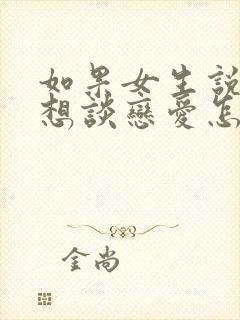 如果女生說
想談戀愛怎
金尚